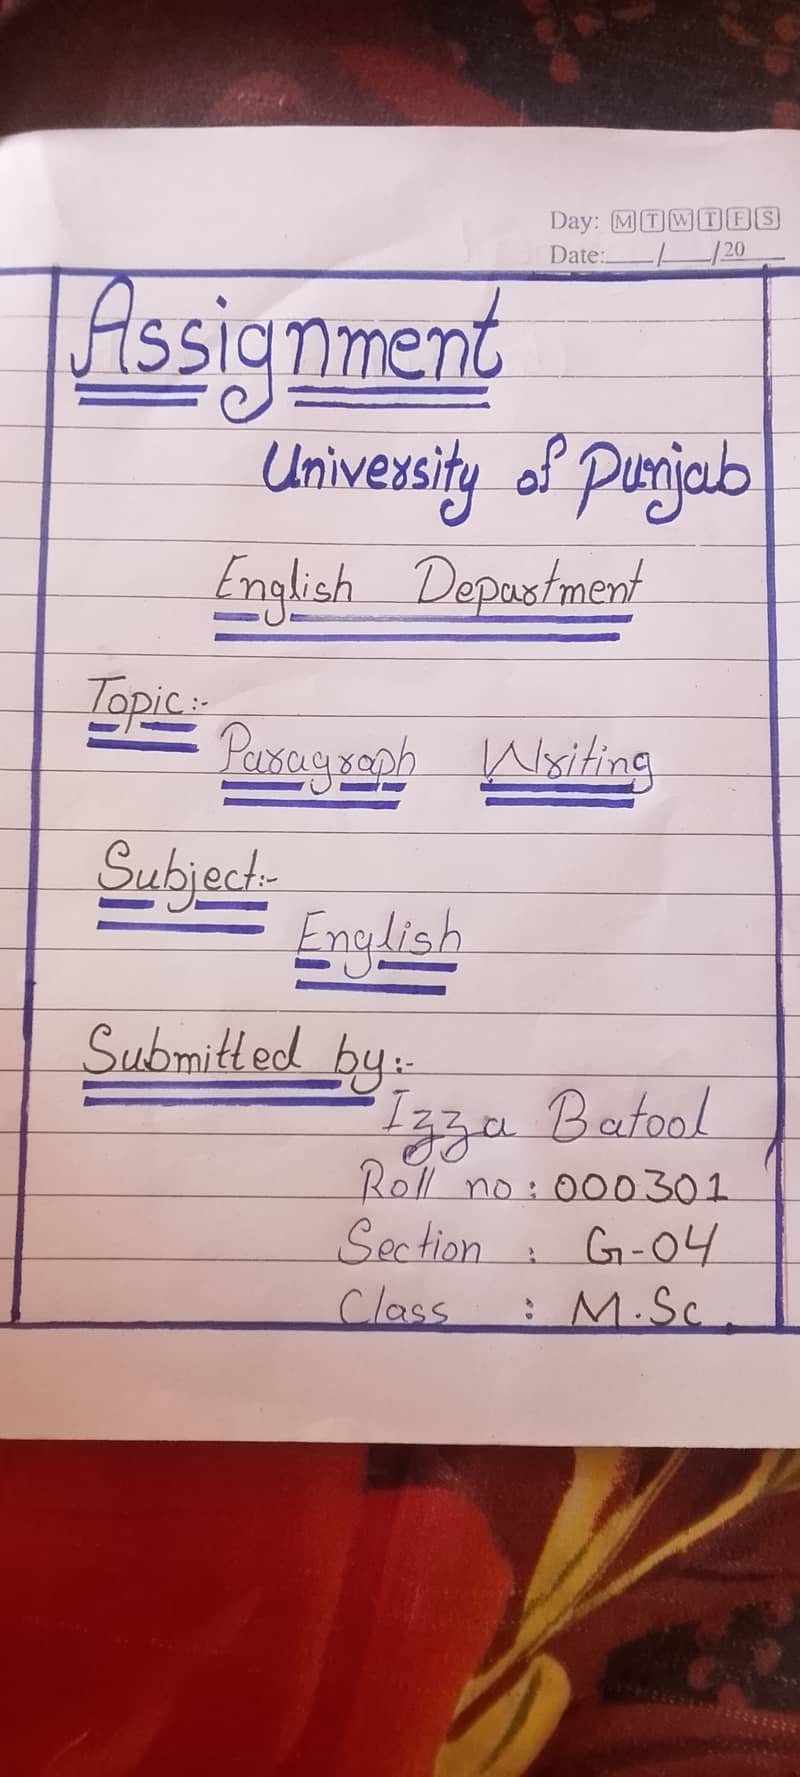 Day: M T W T F S
Date:____/____/20____
Assignment
University of Punjab
English Department
Topic:-
Paragraph Writing
Subject:-
English
Submitted by:-
Izza Batool
Roll no : 000301
Section : G-04
Class : M.Sc.